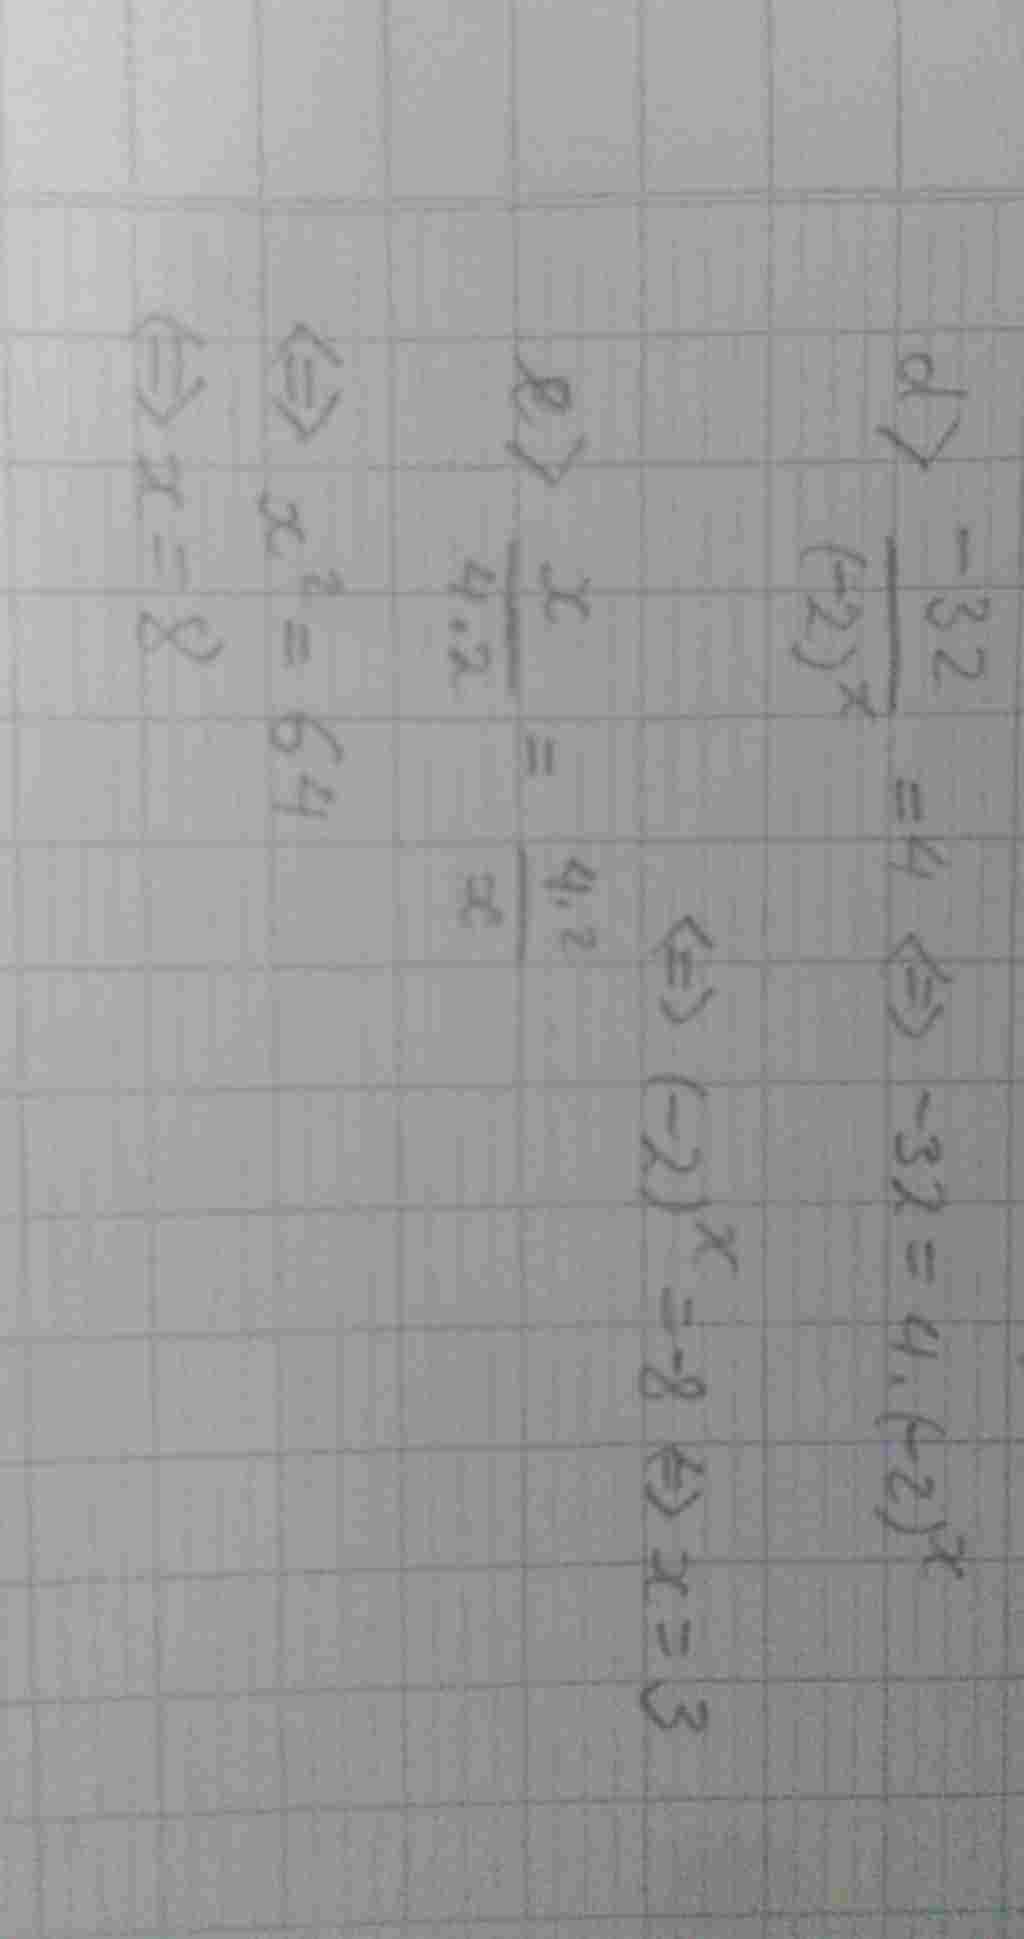 d> -32/(-2)^x = 4 <=> -32 = 4.(-2)^x
<=> (-2)^x = -8 <=> x = 3
e> x/4.2 = 4.2/x
<=> x² = 64
<=> x = 8